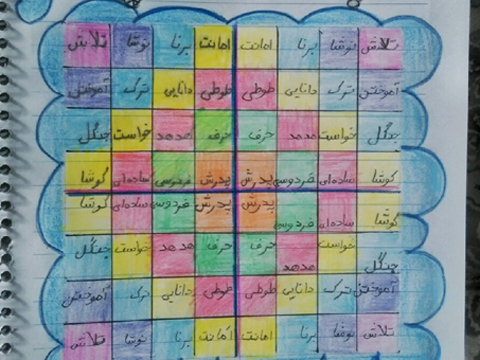 تلاش نوشا برنا امانت امانت برنا نوشا تلاش
آموختن ترک دانایی طوطی طوطی دانایی ترک آموختن
جنگل خواست هدهد حرف حرف هدهد خواست جنگل
گوشا ساده‌ای فردوسی پدرش پدرش فردوسی ساده‌ای گوشا
گوشا ساده‌ای فردوسی پدرش پدرش فردوسی ساده‌ای گوشا
جنگل خواست هدهد حرف حرف هدهد خواست جنگل
آموختن ترک دانایی طوطی طوطی دانایی ترک آموختن
تلاش نوشا برنا امانت امانت برنا نوشا تلاش